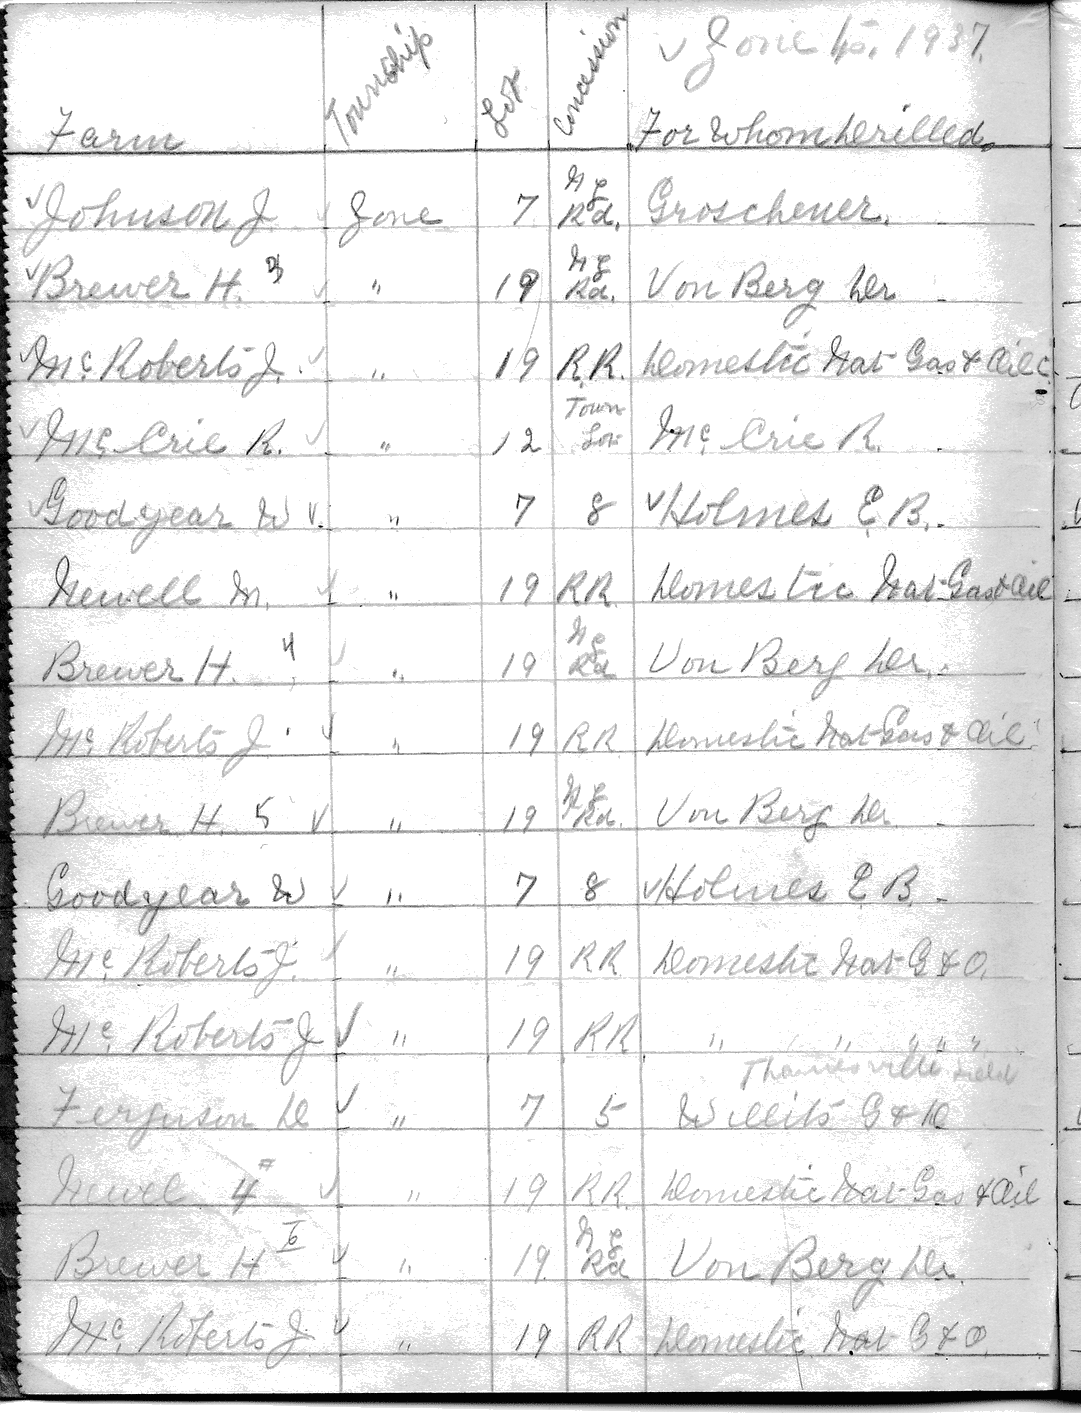 ✓ Zone 15, 1937.
Farm Township Lot Concession For Whom Drilled.
✓ Johnson J. ✓ Zone 7 N L Rd. Groschener.
✓ Brewer H. 3 ✓ " 19 N L Rd. Von Berg Dr
✓ Mc Roberts J. ✓ " 19 R.R. Domestic Nat Gas & Oil C
✓ Mc Crie R. ✓ " 12 Town Lot Mc Crie R.
✓ Goodyear W ✓ " 7 8 ✓ Holmes E. B.
Newell M. ✓ " 19 RR. Domestic Nat Gas & Oil
Brewer H. 4 ✓ " 19 N L Rd Von Berg Dr.
Mc Roberts J ✓ " 19 RR Domestic Nat Gas & Oil
Brewer H. 5 ✓ " 19 N L Rd. Von Berg Dr
Goodyear W ✓ " 7 8 ✓ Holmes E B.
Mc Roberts J. ✓ " 19 RR Domestic Nat G & O.
Mc Roberts J ✓ " 19 RR " " " " "
Thamesville Field
Ferguson D ✓ " 7 5 Willits G & D
Newel 4 # ✓ " 19 RR. Domestic Nat Gas & Oil
Brewer H 6 ✓ " 19 N L Rd Von Berg Dr.
Mc Roberts J. ✓ " 19 RR Domestic Nat G & O.